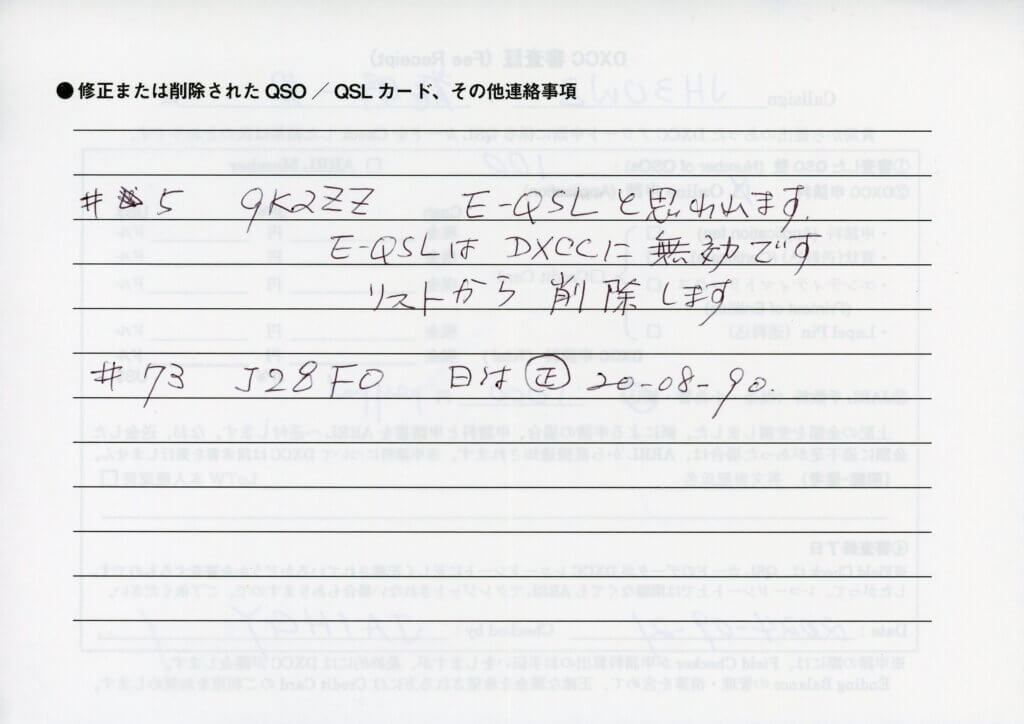 ●修正または削除されたQSO／QSLカード、その他連絡事項
#5 9K2ZZ E-QSLと思われます.
E-QSLは DXCCに無効です
リストから 削除します
#73 J28FO 日は 正 20-08-90.